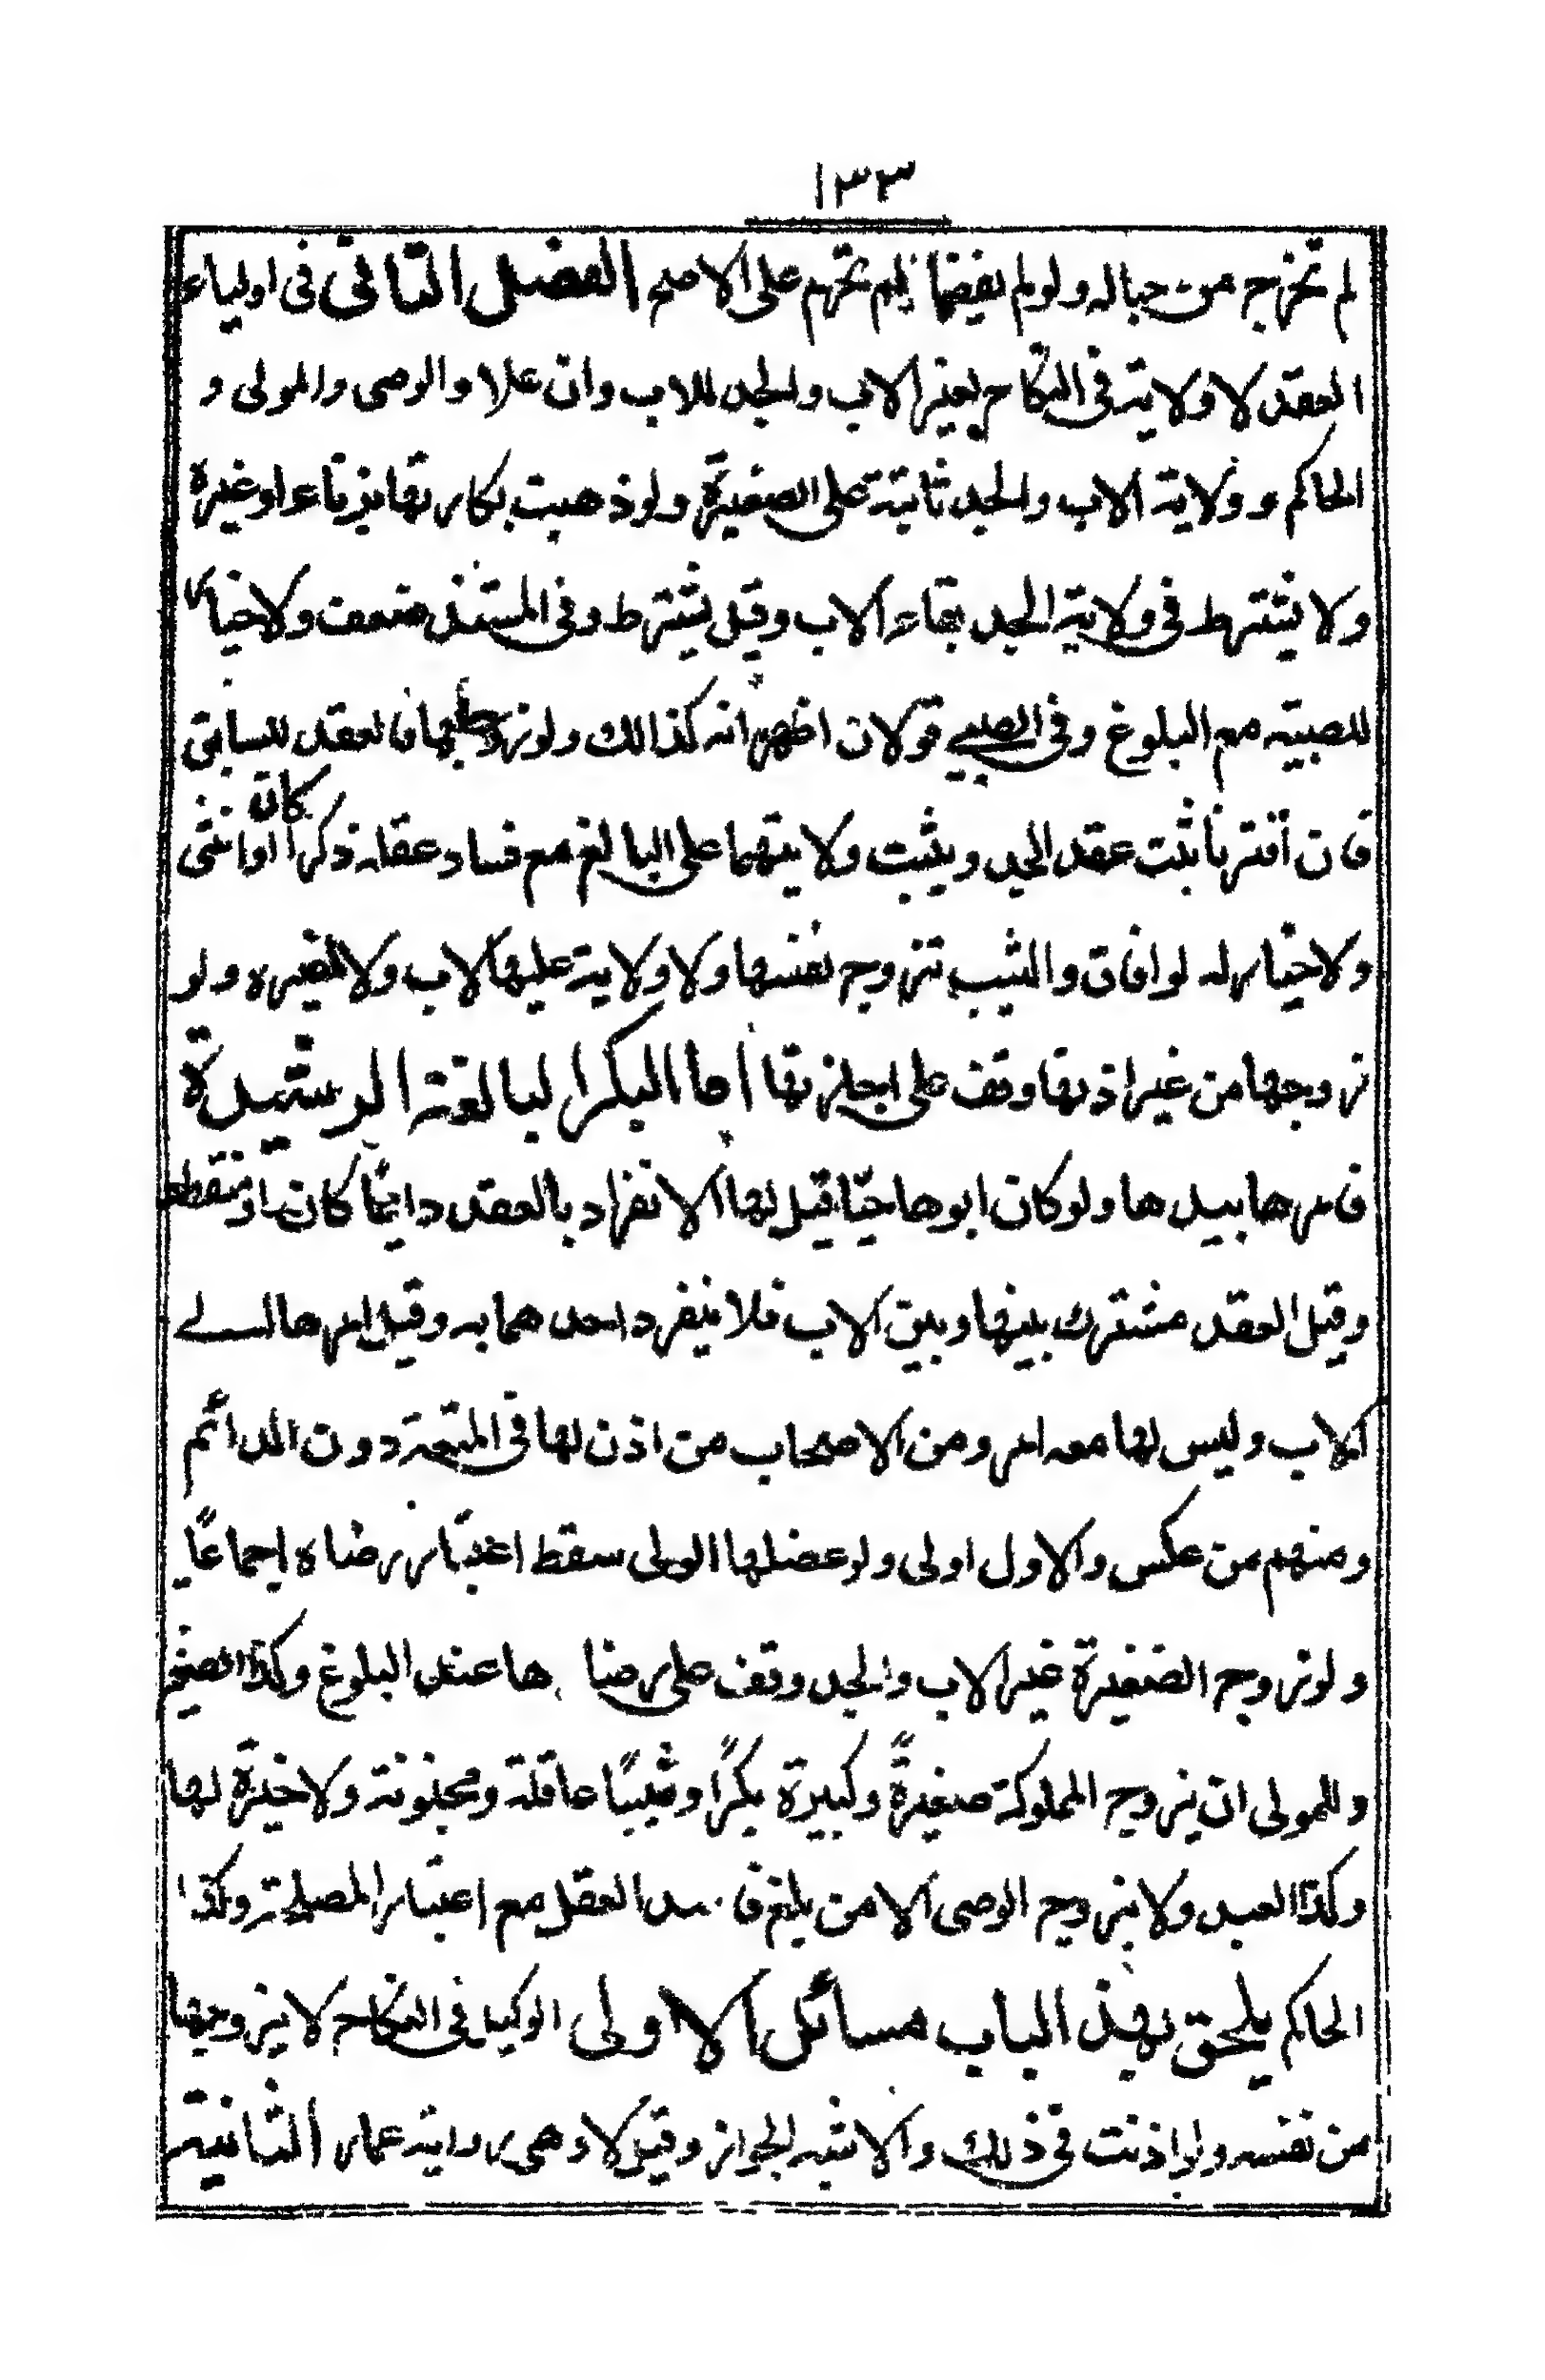 ١٣٣
لم تخرج من حباله ولو لم يفضها لم تحرم على الاصح الفصل الثانى فى اولياء
العقد لا ولاية فى النكاح لغير الاب والجد للاب وان علا والوصى والمولى و
الحاكم و ولاية الاب والجد ثابتة على الصغيرة ولو ذهبت بكارتها بزناء او غيرة
ولا يشترط فى ولاية الجد بقاء الاب وقيل يشترط وفى المستند ضعف ولا خيار
للصبيّة مع البلوغ وفى الصبي قولان اظهر انه كذالك ولو زوجها فالعقد للسابق
فان اقترنا ثبت عقد الجد ويثبت ولايتهما على البالغ مع فساد عقله ذكرا كان او انثى
ولا خيار له لو افاق والثيب تزوج نفسها ولا ولاية عليها لاب ولا لغيره ولو
زوجها من غير اذنها وقف على اجازتها أما البكر البالغة الرشيدة
فامرها بيدها ولو كان ابوها حيّا قيل لها الانفراد بالعقد دائمًا كان او منقطعا
وقيل العقد مشترك بينها وبين الاب فلا ينفرد احدهما به وقيل امرها الى
الاب وليس لها معه امر ومن الاصحاب من اذن لها فى المتعة دون الدائم
ومنهم من عكس والاول اولى ولو عضلها الولى سقط اعتبار رضاه إجماعًا
ولو زوج الصغيرة غير الاب والجد وقف على رضاها عند البلوغ وكذا الصغير
وللمولى ان يزوج المملوكة صغيرةً وكبيرة بكرًا وثيبًا عاقلة ومجنونة ولا خيرة لها
وكذا العبد ولا يزوج الوصى الا من بلغ فاسد العقل مع اعتبار المصلحة وكذا
الحاكم يلحق بهذ الباب مسائل الاولى الوكيل فى النكاح لا يزوجها
من نفسه ولو اذنت فى ذلك والاشبه الجواز وقيل لا وهى رواية عمار الثانية